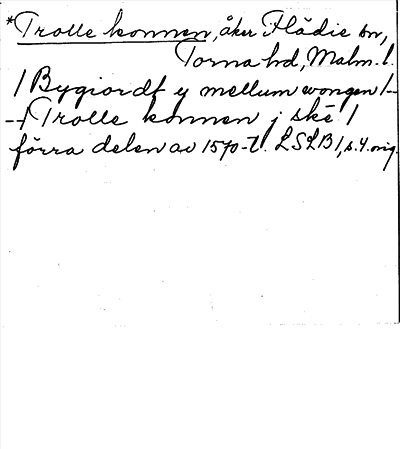 *Trolle konnen, åker Flädie sn,
Torna hd, Malm. l.
/ Bygiordt y mellum wongen /--
--/ Trolle konnen j skē /
förra delen av 1570-t. LSLB 1, s. 4. orig.